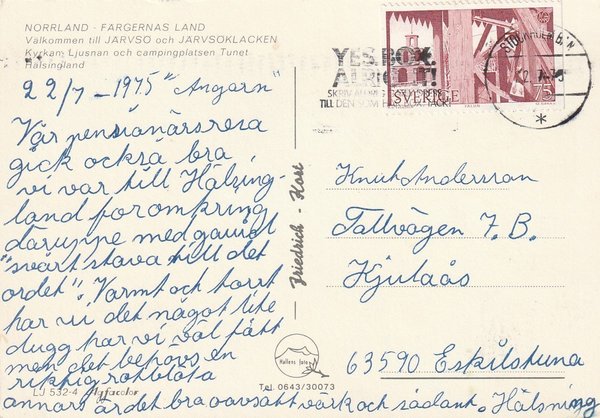 NORRLAND - FÄRGERNAS LAND
Välkommen till JÄRVSÖ och JÄRVSÖKLACKEN
Kyrkan, Ljusnan och campingplatsen Tunet
Hälsingland
22/7 - 1975 "Angarn"
Vår pensionärsresa
gick också bra
vi var till Hälsing-
land for omkring
däruppe med
"svårt stava till det
ordet". Varmt och torrt
har vi det något lite
dugg har vi väl fått
men det behövs en
riktig rotblöta
annars är det bra oavsett värk och sådant. Hälsning
LJ 532-4 Agfacolor
Friedrich - Kort
Hallens foto
Tel 0643/30073
YES BOX.
ALRIGHT!
SKRIV ALDRIG
TILL DEN SOM
SVERIGE
75
Knut Andersson
Tallvägen 7. B.
Hjulaås
63590 Eskilstuna